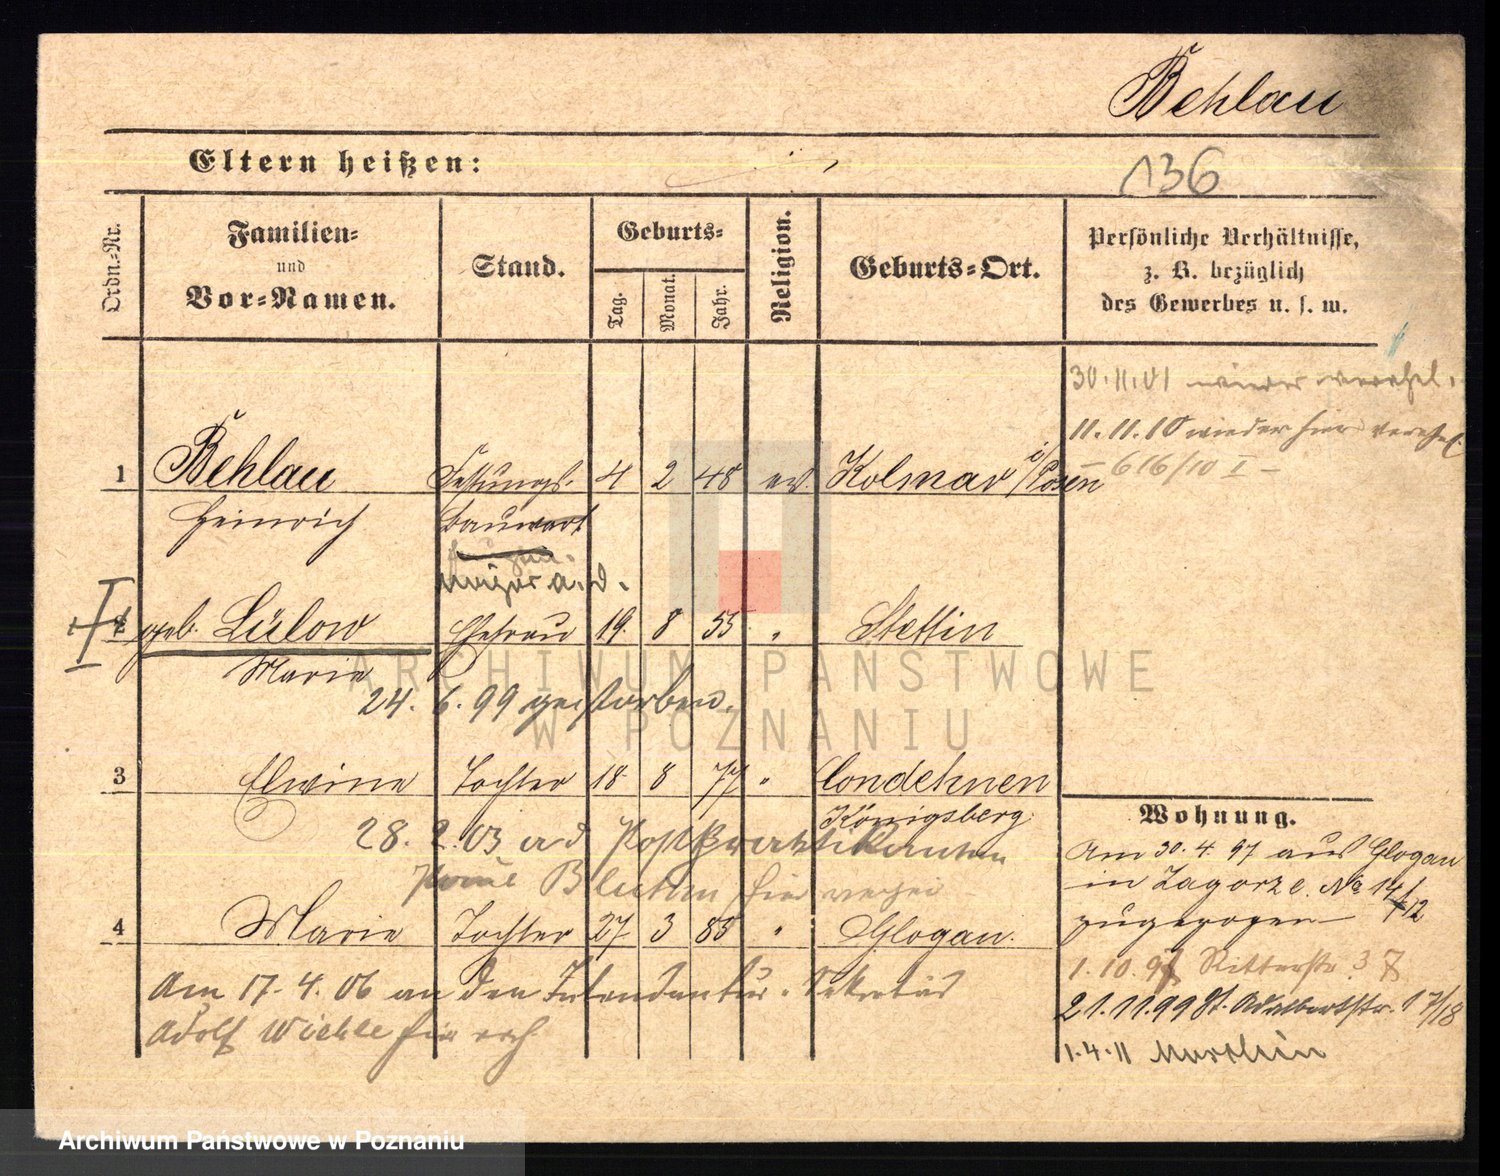 Behlau
Eltern heißen:
136
Ordn.-Nr.
Familien-
und
Vor-Namen.
Stand.
Geburts-
Tag.
Monat.
Jahr.
Religion.
Geburts-Ort.
Persönliche Verhältnisse,
z. B. bezüglich
des Gewerbes u. s. w.
30.11.01 wieder verehel.
11.11.10 wieder hier verehel.
– 616/10 I –
1 Behlau Festungs- 4 2 48 ev. Kolmar i/Posen
Heinrich bauwart
a. D.
geb. Lülow Ehefrau 19. 8 55 " Stettin
Marie
24. 6. 99 gestorben.
3 Elwine Tochter 18. 8 77 " Condehnen
Königsberg
28. 2. 03 an d Postpraktikanten
Bluhm hier
4 Marie Tochter 27 3 85 " Glogau.
Am 17. 4. 06 an den Intendantur-Sekretär
Adolf hier
Wohnung.
Am 30. 4. 97 aus Glogau
in Zagorze No 14/12
zugezogen
1. 10. 97 Ritterstr. 38
21.11.99 St. Adalbertstr. 17/18
1.4.11
ARCHIWUM PAŃSTWOWE
W POZNANIU
Archiwum Państwowe w Poznaniu